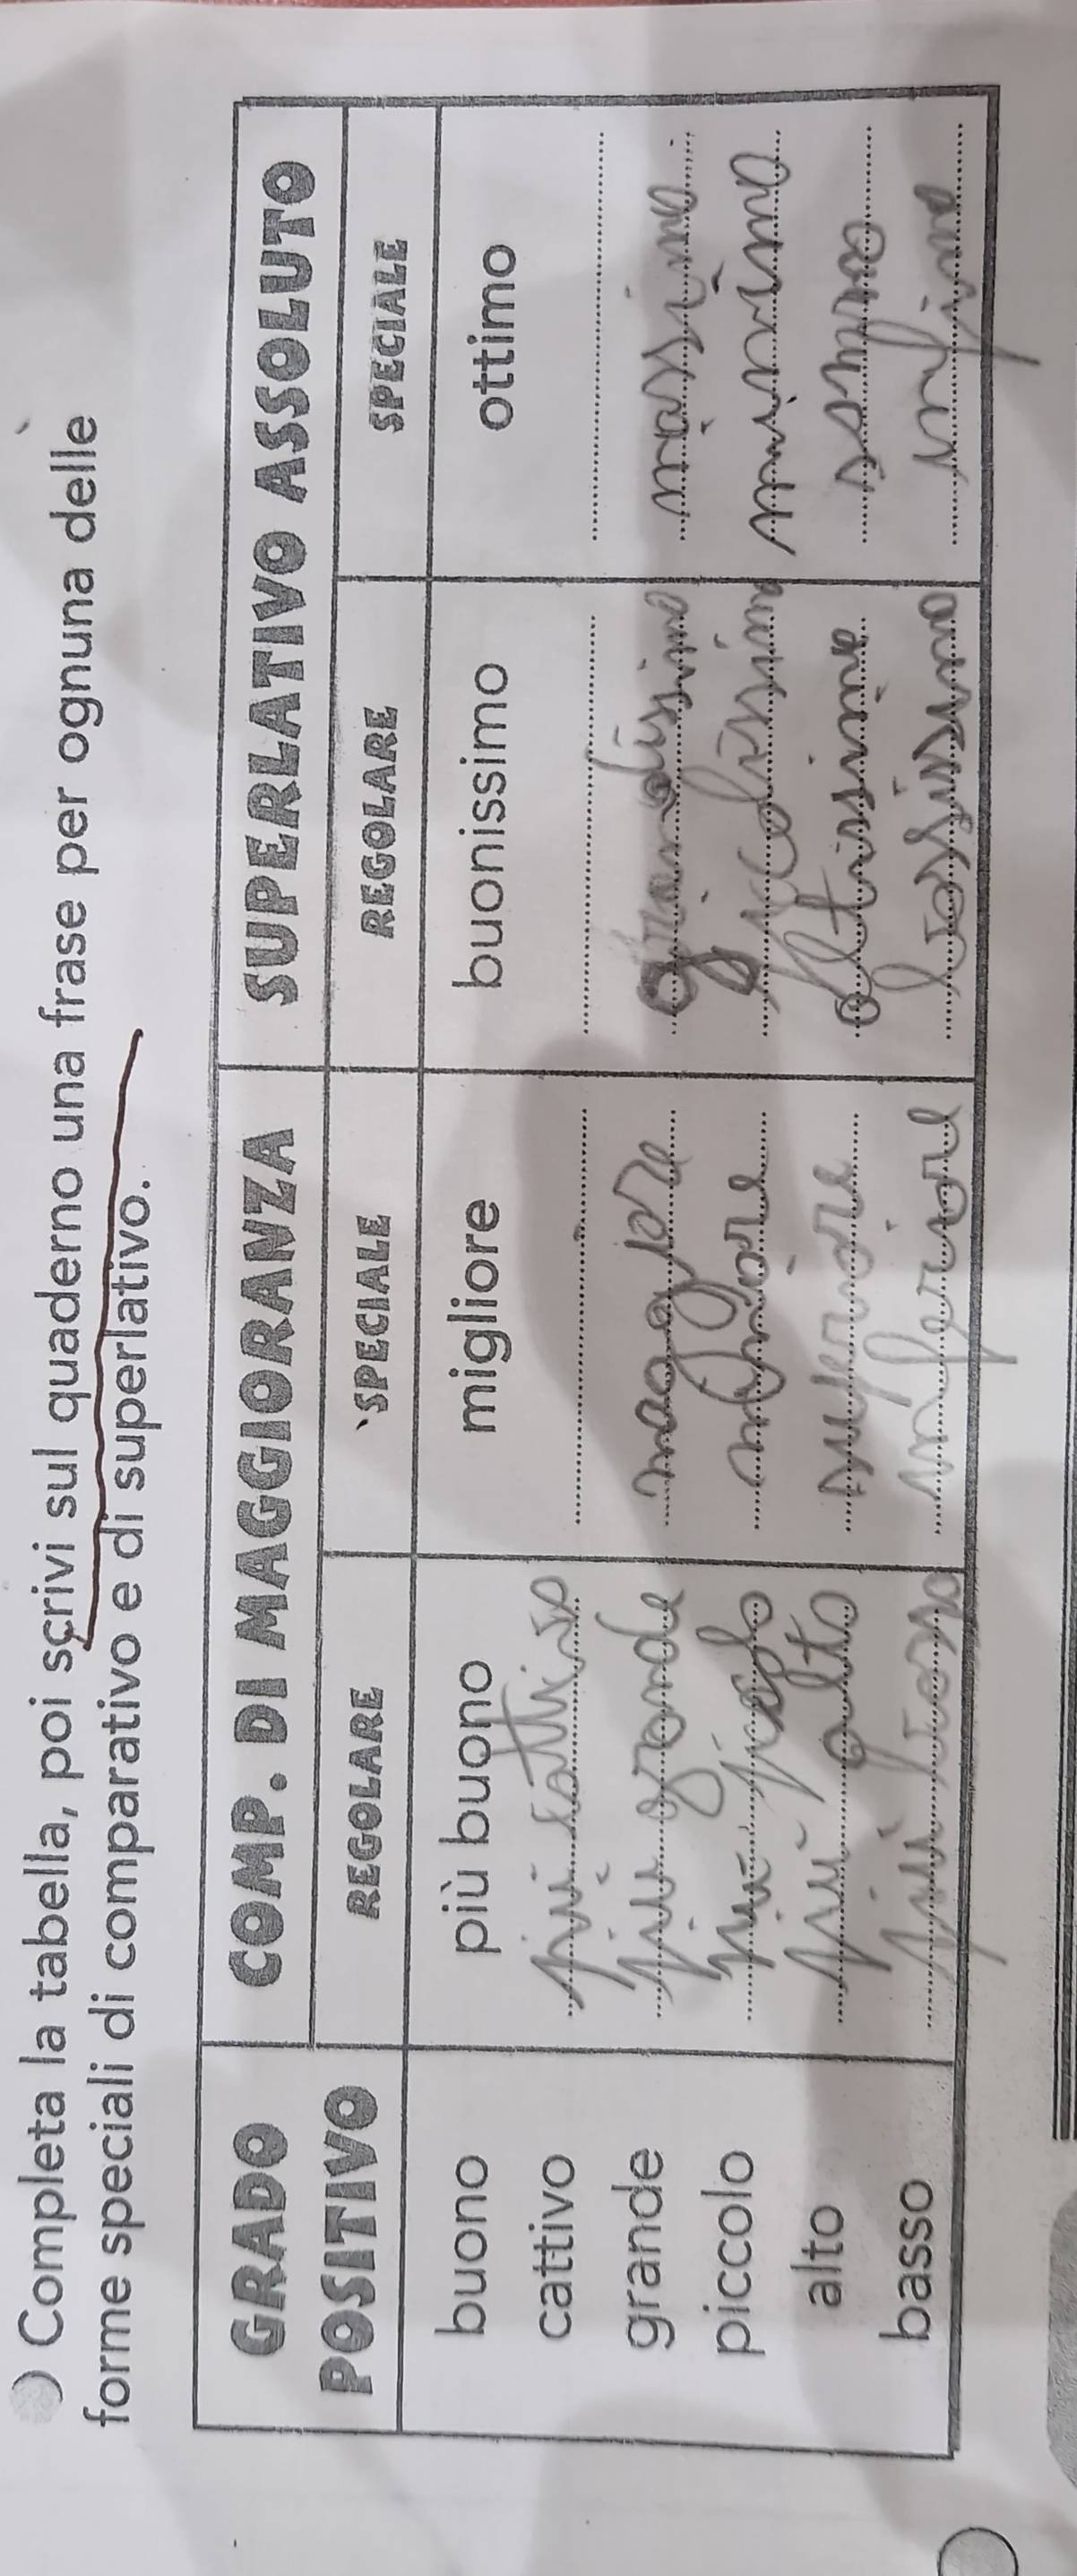 Completa la tabella, poi scrivi sul quaderno una frase per ognuna delle
forme speciali di comparativo e di superlativo.
GRADO POSITIVO COMP. DI MAGGIORANZA SUPERLATIVO ASSOLUTO
REGOLARE SPECIALE REGOLARE SPECIALE
buono più buono migliore buonissimo ottimo
cattivo più cattivo
grande più grande maggiore grandissimo massimo
piccolo più piccolo minore piccolissimo minimo
alto più alto superiore altissimo
basso più basso inferiore bassissimo infimo